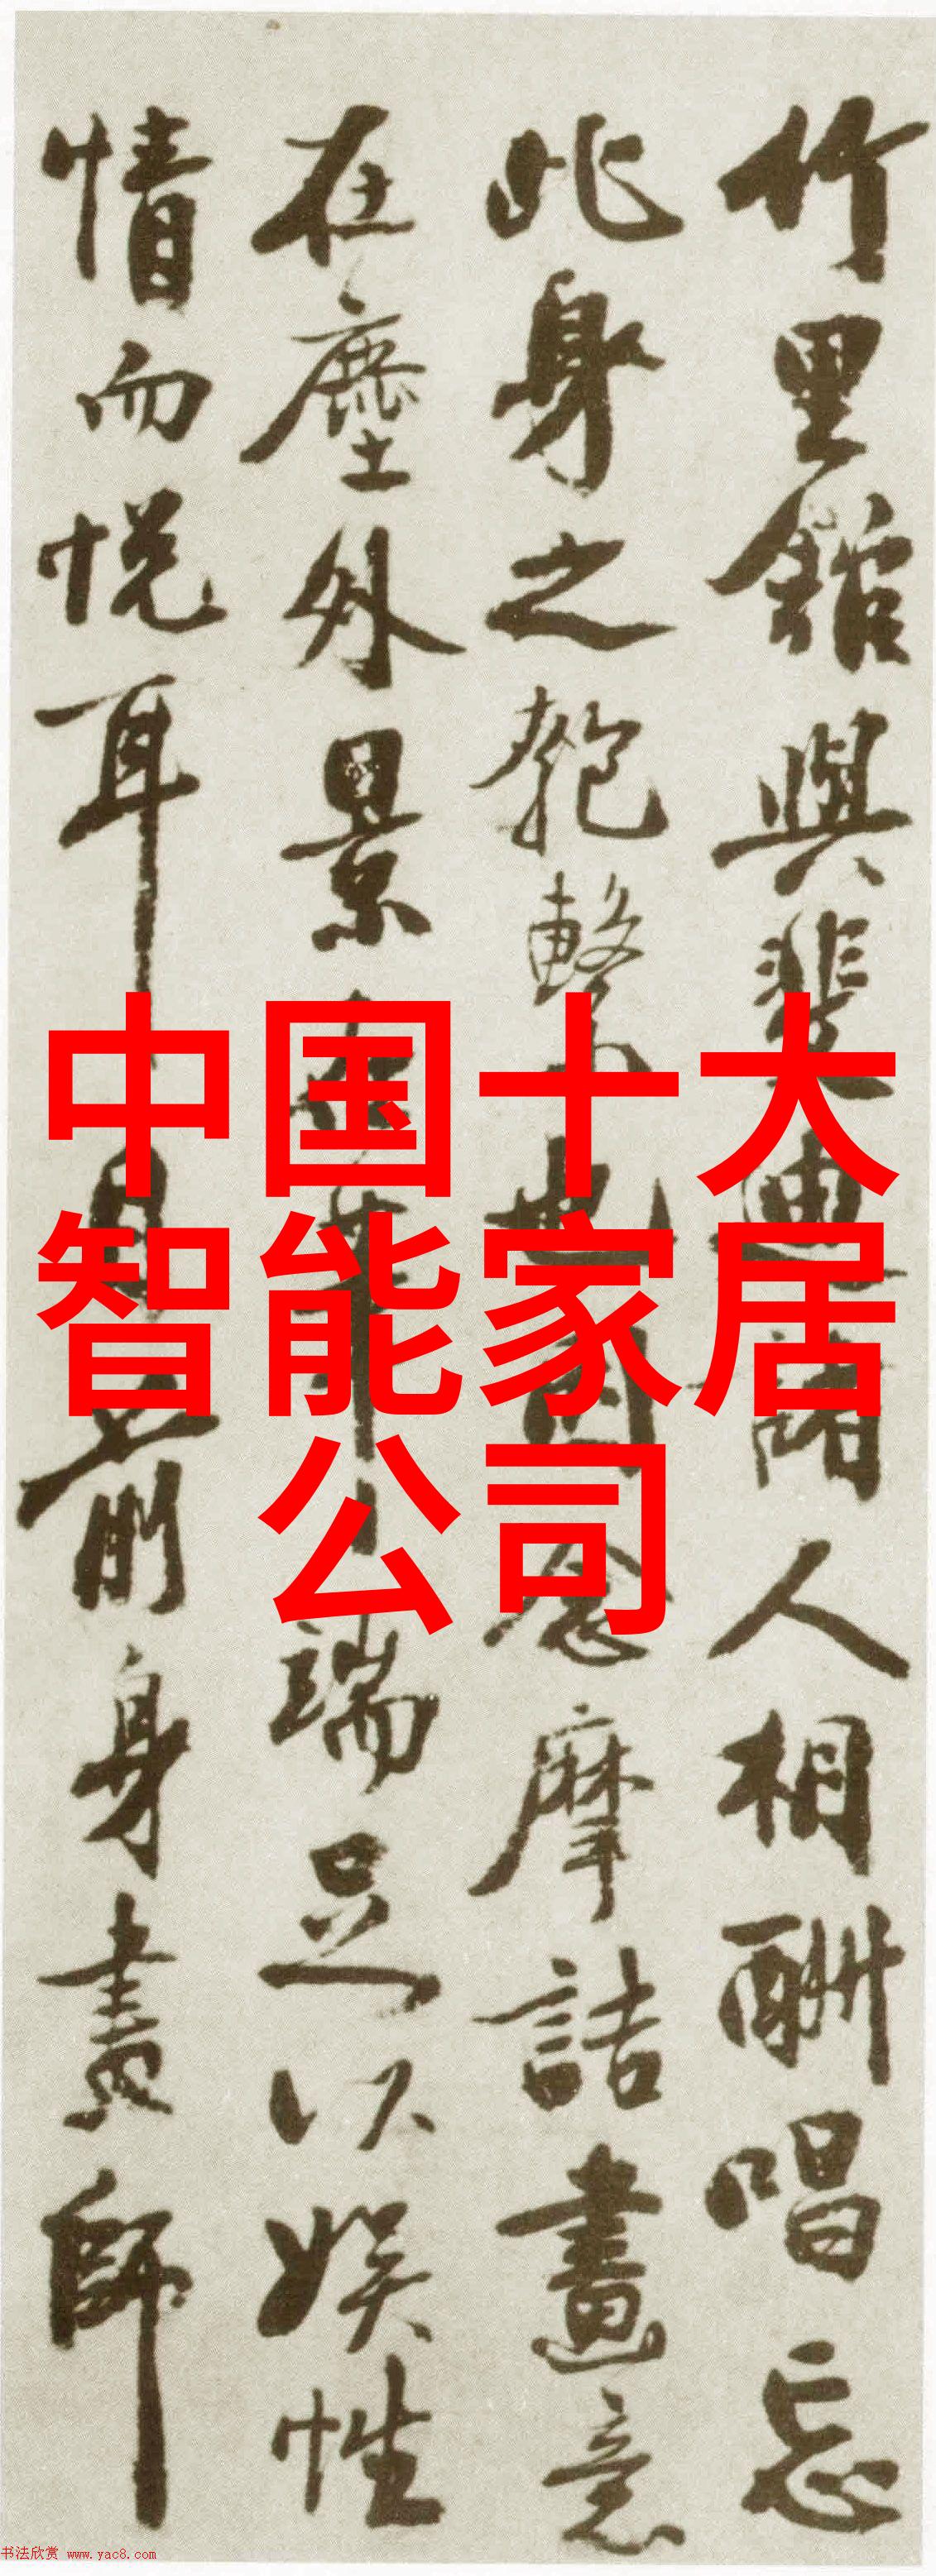 竹里館與裴迪諸人相酬唱忘
此身之匏繫也因念摩詰畫意
在塵外景
端足以娱性
情而悦耳目前身畫師
中国十大
智能家居
公司
书法欣赏 www.yac8.com